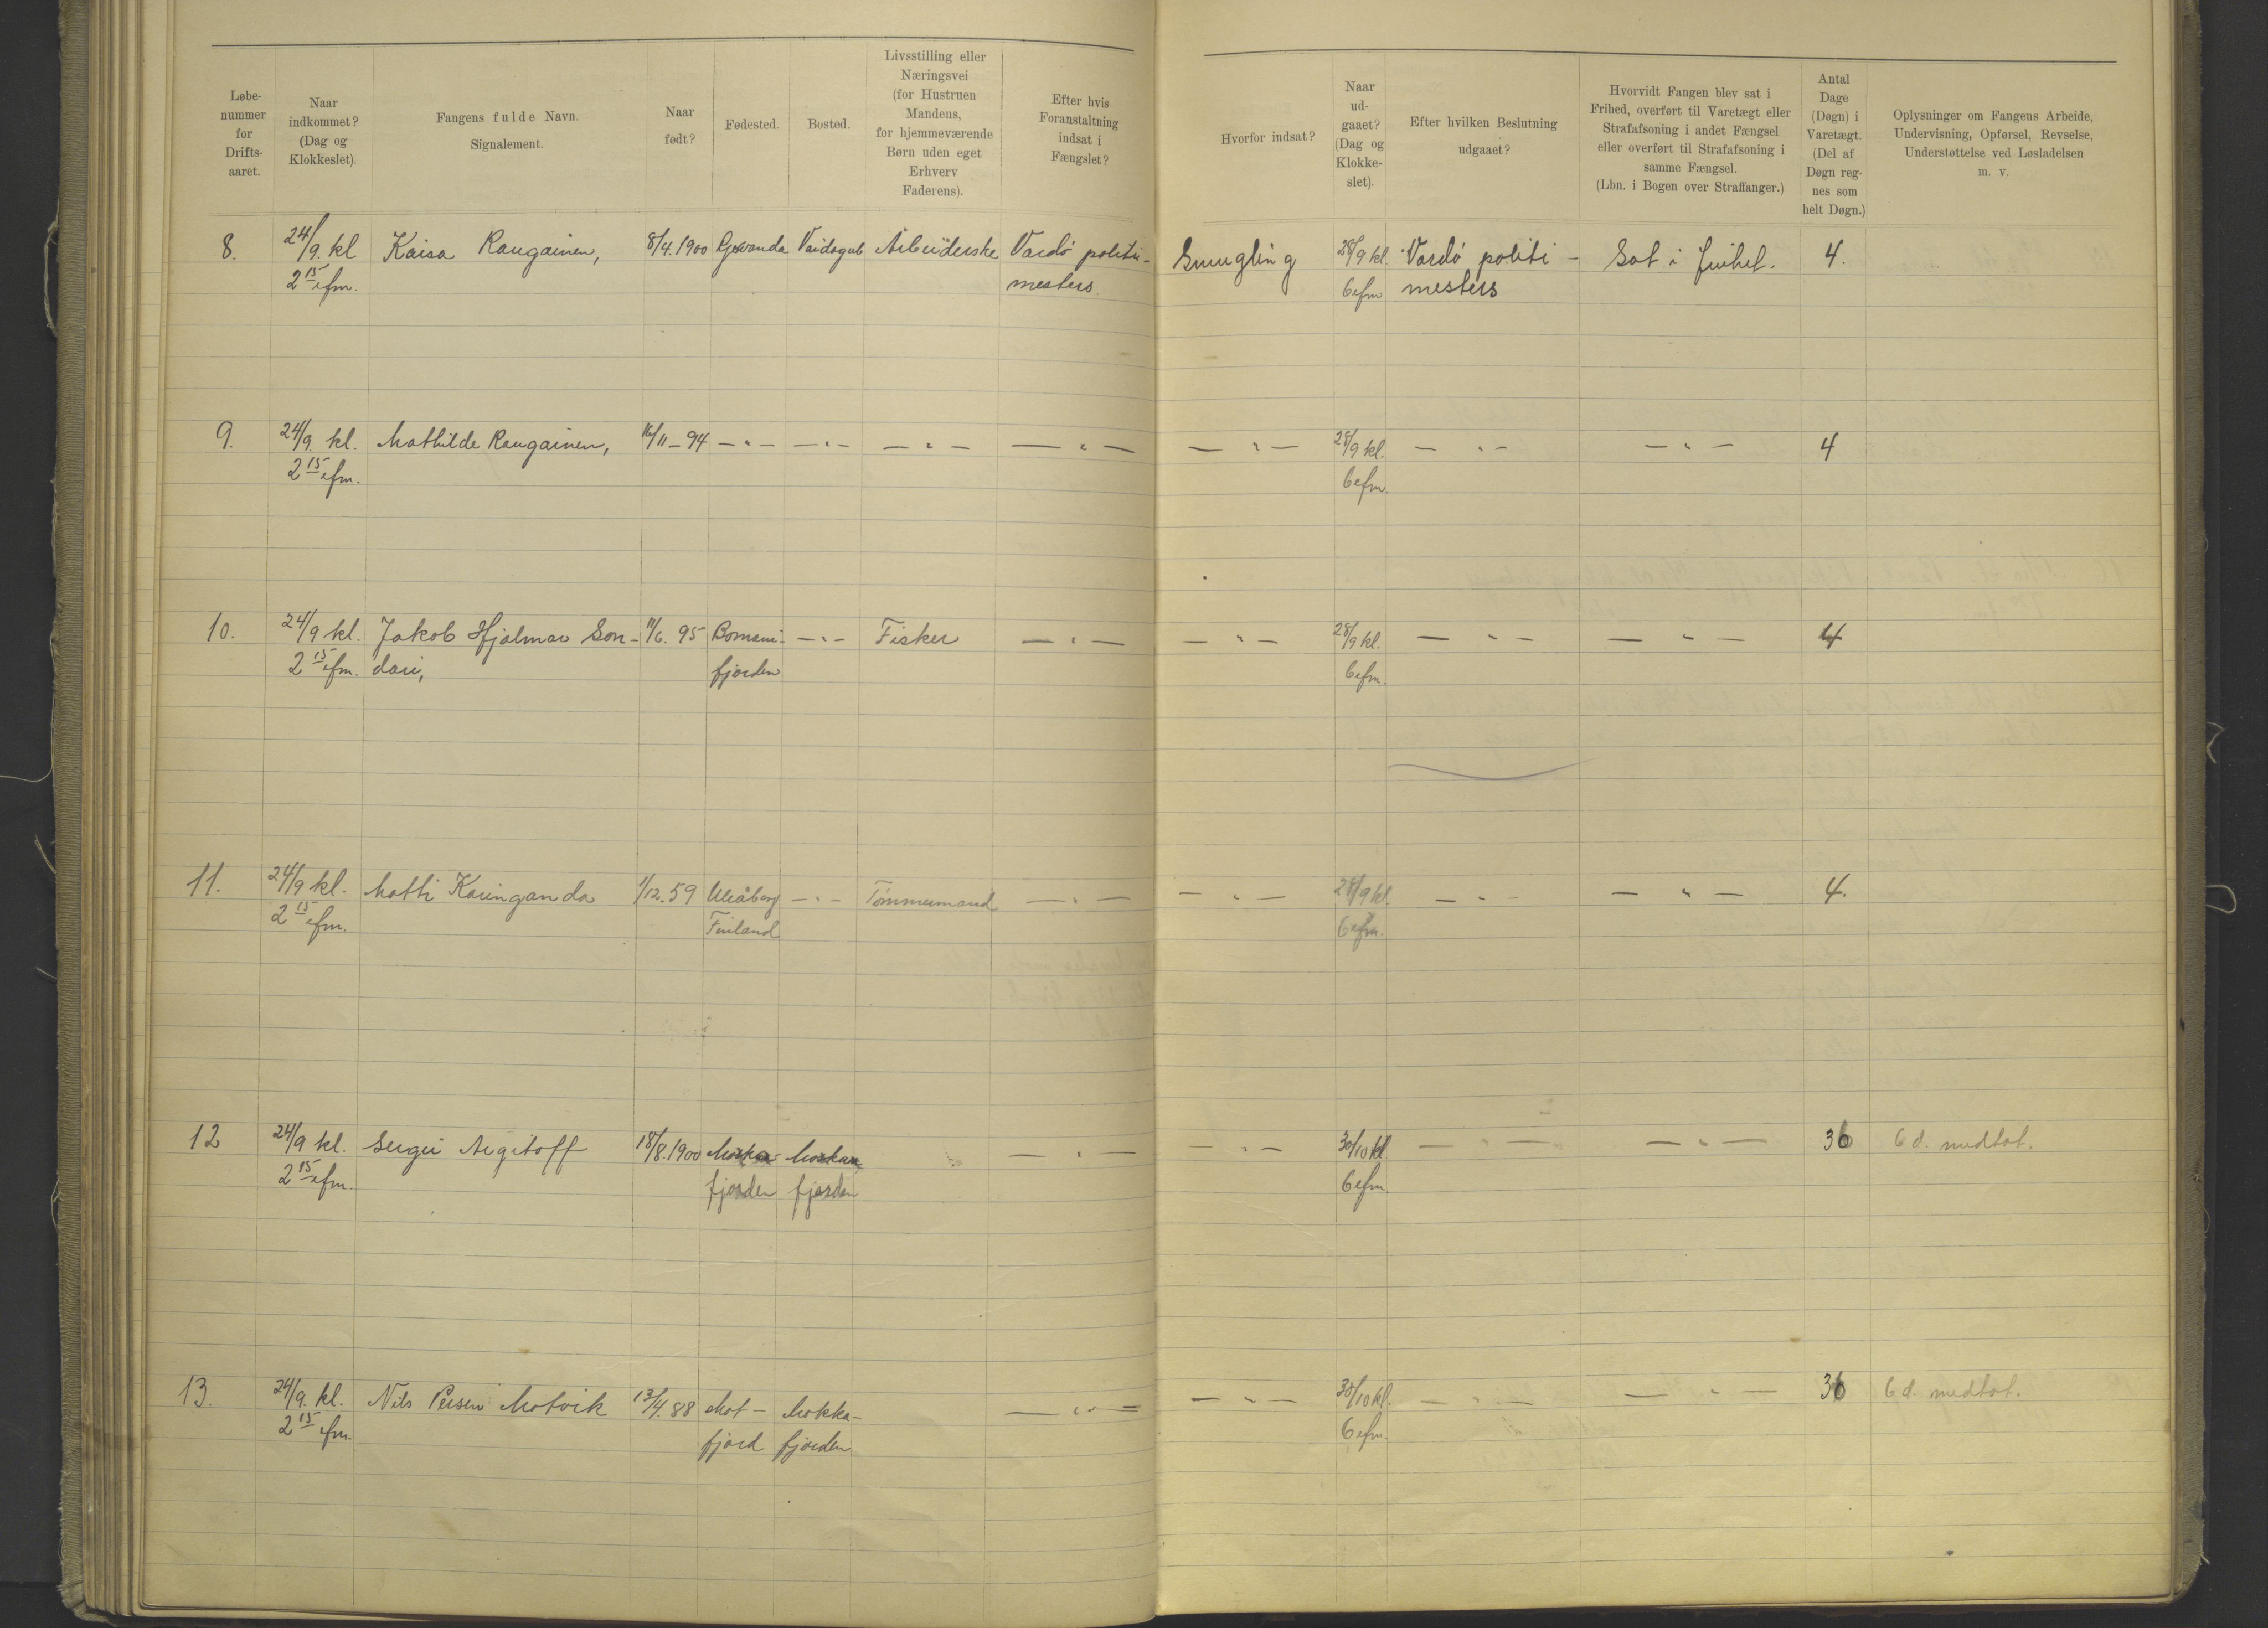 Løbe-
nummer
for
Drifts-
aaret.
Naar
indkommet?
(Dag og
Klokkeslet).
Fangens fulde Navn.
Signalement.
Naar
født?
Fødested.
Bosted.
Livsstilling eller
Næringsvei
(for Hustruen
Mandens,
for hjemmeværende
Børn uden eget
Erhverv
Faderens).
Efter hvis
Foranstaltning
indsat i
Fængslet?
Hvorfor indsat?
Naar
ud-
gaaet?
(Dag og
Klokke-
slet).
Efter hvilken Beslutning
udgaaet?
Hvorvidt Fangen blev sat i
Frihed, overført til Varetægt eller
Strafafsoning i andet Fængsel
eller overført til Strafafsoning i
samme Fængsel.
(Lbn. i Bogen over Straffanger.)
Antal
Dage
(Døgn) i
Varetægt.
(Del af
Døgn reg-
nes som
helt Døgn.)
Oplysninger om Fangens Arbeide,
Undervisning, Opførsel, Revselse,
Understøttelse ved Løsladelsen
m. v.
8. 24/9. kl Kaisa Raugainen, 8/4.1900 Vaidagub Arbeiderske Vardö politi- Smugling 28/9 kl. Vardö politi - Sat i frihet. 4.
2 15 efm. mesters. 6 efm mesters
9. 24/9. kl. Mathilde Raugainen, 16/11-94 — " — — " — — " — — " — — " — 28/9 kl. — " — — " — 4
2 15 efm. 6 efm.
10. 24/9 kl. Jakob Hjalmar Son- 11/6. 95 Bomani- — " — Fisker — " — — " — 28/9 kl. — " — — " — 4
2 15 efm. dari, fjorden 6 efm.
11. 24/9 kl. Matti Karinganda 1/12. 59 Uleåborg — " — Tömmermand — " — — " — 28/9 kl. — " — — " — 4.
2 15 efm. Finland 6 efm.
12 24/9 kl. Sergei Argitoff 18/8.1900 Moska- Moskan — " — — " — 30/10 kl — " — — " — 36 6 d. medtat.
2 15 efm. fjorden fjorden 6 efm.
13. 24/9. kl. Nils Persen Motvik 13/4. 88 Mot- Mokka- — " — — " — 30/10 kl. — " — — " — 36 6 d. medtat.
2 15 efm. fjord fjorden 6 efm.